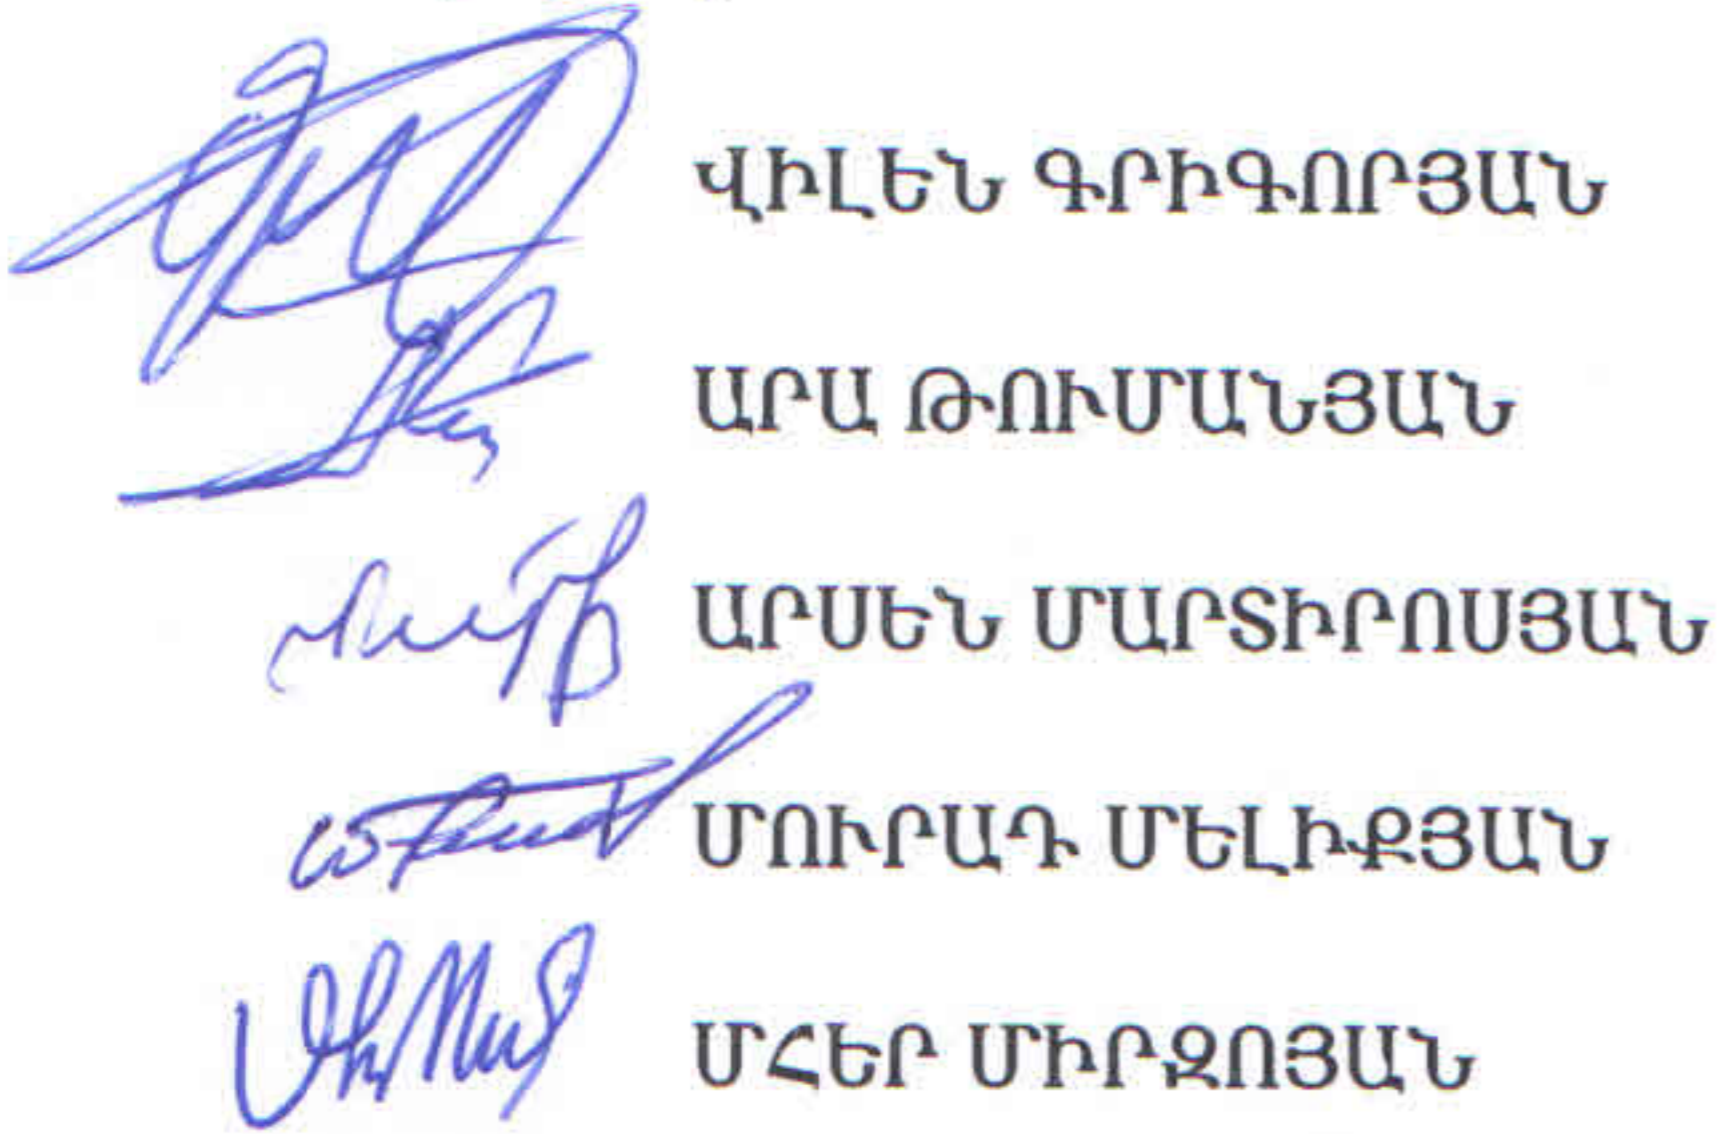 ՎԻԼԵՆ ԳՐԻԳՈՐՅԱՆ
ԱՐԱ ԹՈՒՄԱՆՅԱՆ
ԱՐՍԵՆ ՄԱՐՏԻՐՈՍՅԱՆ
ՄՈՒՐԱԴ ՄԵԼԻՔՅԱՆ
ՄՀԵՐ ՄԻՐԶՈՅԱՆ